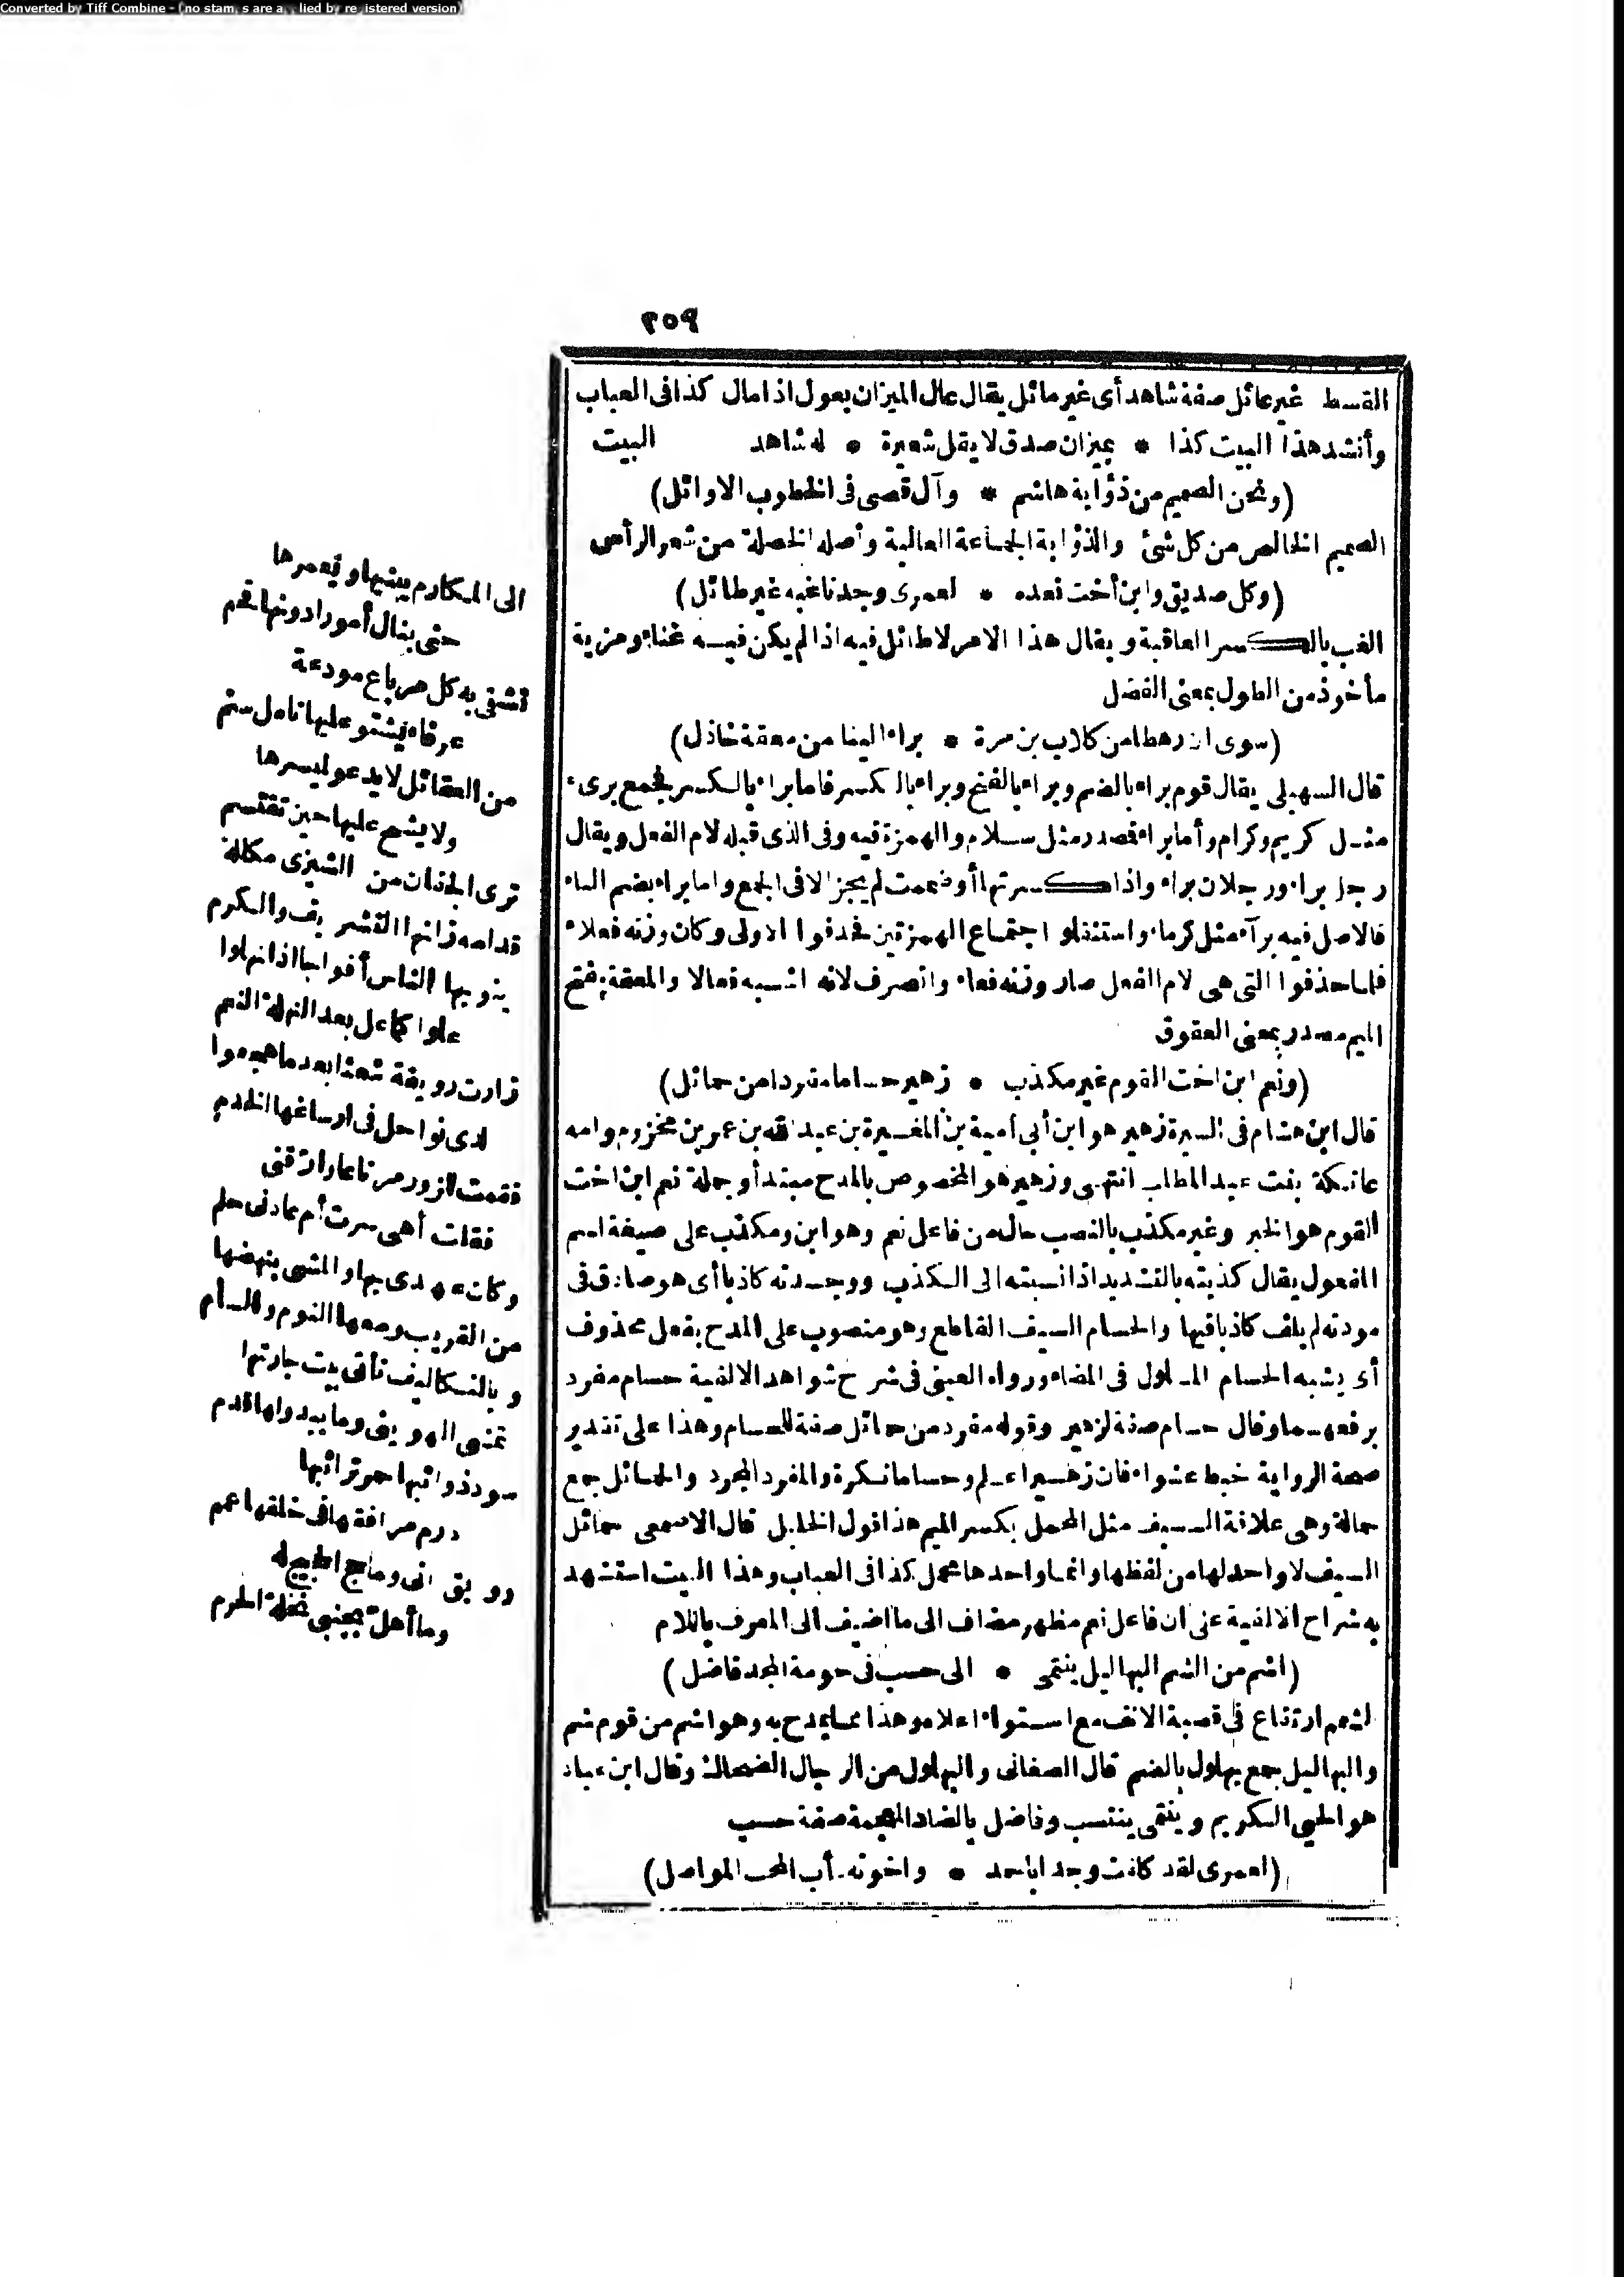 Converted by Tiff Combine - (no stamps are applied by registered version)
٢٥٩
القسط غير عائل صفة شاهد أى غير مائل يقال عال الميزان يعول اذا مال كذا فى العباب
وأنشد هذا البيت كذا * بميزان صدق لا يقل شعيرة * له شاهد البيت
(ونحن الصميم من ذؤابة هاشم * وآل قصى فى الخطوب الاوائل)
الصميم الخالص من كل شئ والذؤابة الجماعة العالية وأصله الخصلة من شعر الرأس
(وكل صديق وابن أخت نعده * لعمرى وجدنا غبه غير طائل)
الغب بالكسر العاقبة ويقال هذا الامر لا طائل فيه اذا لم يكن فيه غناء ومزية
مأخوذ من الطول بمعنى الفضل
(سوى ان رهطا من كلاب بن مرة * براء الينا من معقة خاذل)
قال السهيلى يقال قوم براء بالضم وبراء بالفتح وبراء بالكسر فاما براء بالكسر فجمع برىء
مثل كريم وكرام وأما براء فمصدر مثل سلام والهمزة فيه وفى الذى قبله لام الفعل ويقال
رجل براء ورجلان براء واذا كسرتها أو ضممت لم يجز الا فى الجمع واما براء بضم الباء
فالاصل فيه برآء مثل كرماء واستثقلوا اجتماع الهمزتين فحذفوا الاولى وكان وزنه فعلاء
فلما حذفوا التى هى لام الفعل صار وزنه فعاء وانصرف لانه اشبه فعالا والمعقة بفتح
الميم مصدر بمعنى العقوق
(ونعم ابن اخت القوم غير مكذب * زهير حساما مفردا من حمائل)
قال ابن هشام فى السيرة زهير هو ابن أبى أمية بن المغيرة بن عبد الله بن عمر بن مخزوم وامه
عاتكة بنت عبد المطلب انتهى وزهير هو المخصوص بالمدح مبتدأ وجملة نعم ابن اخت
القوم هو الخبر وغير مكذب بالنصب حال من فاعل نعم وهو ابن ومكذب على صيغة اسم
المفعول يقال كذبته بالتشديد اذا نسبته الى الكذب ووجدته كاذبا أى هو صادق فى
مودته لم يلف كاذبا فيها والحسام السيف القاطع وهو منصوب على المدح بفعل محذوف
أى يشبه الحسام المسلول فى المضاء ورواه العينى فى شرح شواهد الالفية حسام مفرد
برفعهما وقال حسام صفة لزهير وقوله مفرد من حمائل صفة للحسام وهذا على تقدير
صحة الرواية خبط عشواء فان زهيرا علم وحساما نكرة والمفرد المجرد والحمائل جمع
حمالة وهى علاقة السيف مثل المحمل بكسر الميم هذا قول الخليل قال الاصمعى حمائل
السيف لا واحد لها من لفظها وانما واحدها محمل كذا فى العباب وهذا البيت استشهد
به شراح الالفية على ان فاعل نعم مظهر مضاف الى ما اضيف الى المعرف باللام
(اشم من الشم البهاليل ينتمى * الى حسب فى حومة المجد فاضل)
الشمم ارتفاع فى قصبة الانف مع استواء اعلاه وهذا مما يمدح به وهو اشم من قوم شم
والبهاليل جمع بهلول بالضم قال الصغانى والبهلول من الرجال الضحاك وقال ابن عباد
هو الحيى الكريم وينتمى ينتسب وفاضل بالضاد المعجمة صفة حسب
(لعمرى لقد كلفت وجدا باحمد * واخوته دأب المحب المواصل)
الى المكارم يبنيها ويعمرها
حتى ينال أمورا دونها قحم
تشقى به كل مرباع مودعة
عرفاء يشتو عليها تامك سنم
من العقائل لا يدعو لميسرها
ولا يشح عليها حين تقتسم
ترى الجفان من الشيزى مكللة
قدامه زانها التشريف والكرم
ينوبها الناس أفواجا اذا نهلوا
علوا كما عل بعد النهلة النعم
زارت رويقة شعثا بعد ما هجعوا
لدى نواحل فى ارساغها الخدم
فقمت للزور مرتاعا وارقنى
فقلت أهى سرت أم عادنى حلم
وكان عهدى بها والمشى يبهضها
من القريب ومنها النوم والسأم
وبالتكاليف تأتى بيت جارتها
تمشى الهوينى وما يبدو لها قدم
سود ذوائبها حمر ترائبها
درم مرافقها فى خلقها عمم
رويق انى وما حج الحجيج له
وما أهل بجنبى نخلة الحرم